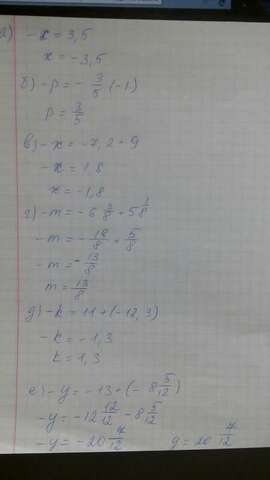 а) -x = 3,5
x = -3,5
б) -p = - 3/5 (-1)
p = 3/5
в) -x = -7,2 - 9
-x = 1,8
x = -1,8
г) -m = -6 3/8 + 5 1/8
-m = - 19/8 + 5/8
-m = - 13/8
m = 13/8
д) -k = 11 + (-12,3)
-k = -1,3
k = 1,3
е) -y = -13 + (- 8 5/12)
-y = -12 12/12 - 8 5/12
-y = -20 7/12 y = 20 7/12